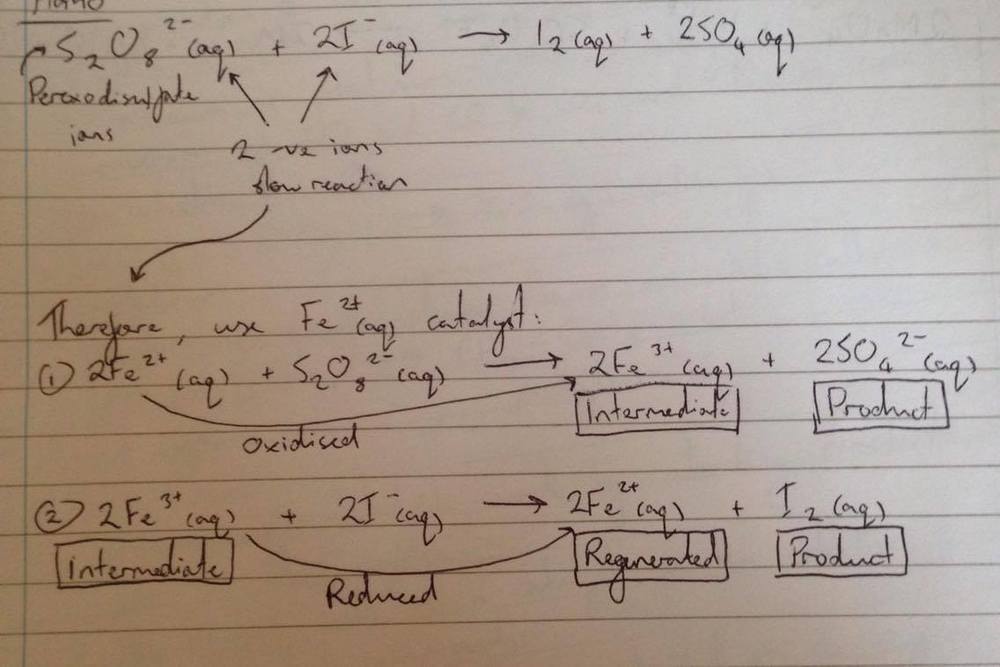 S₂O₈²⁻(aq) + 2I⁻(aq) → I₂(aq) + 2SO₄(aq)
Peroxodisulfate
ions
2 -ve ions
slow reaction
Therefore, use Fe²⁺(aq) catalyst:
① 2Fe²⁺(aq) + S₂O₈²⁻(aq) → 2Fe³⁺(aq) + 2SO₄²⁻(aq)
Intermediate Product
Oxidised
② 2Fe³⁺(aq) + 2I⁻(aq) → 2Fe²⁺(aq) + I₂(aq)
Intermediate Regenerated Product
Reduced